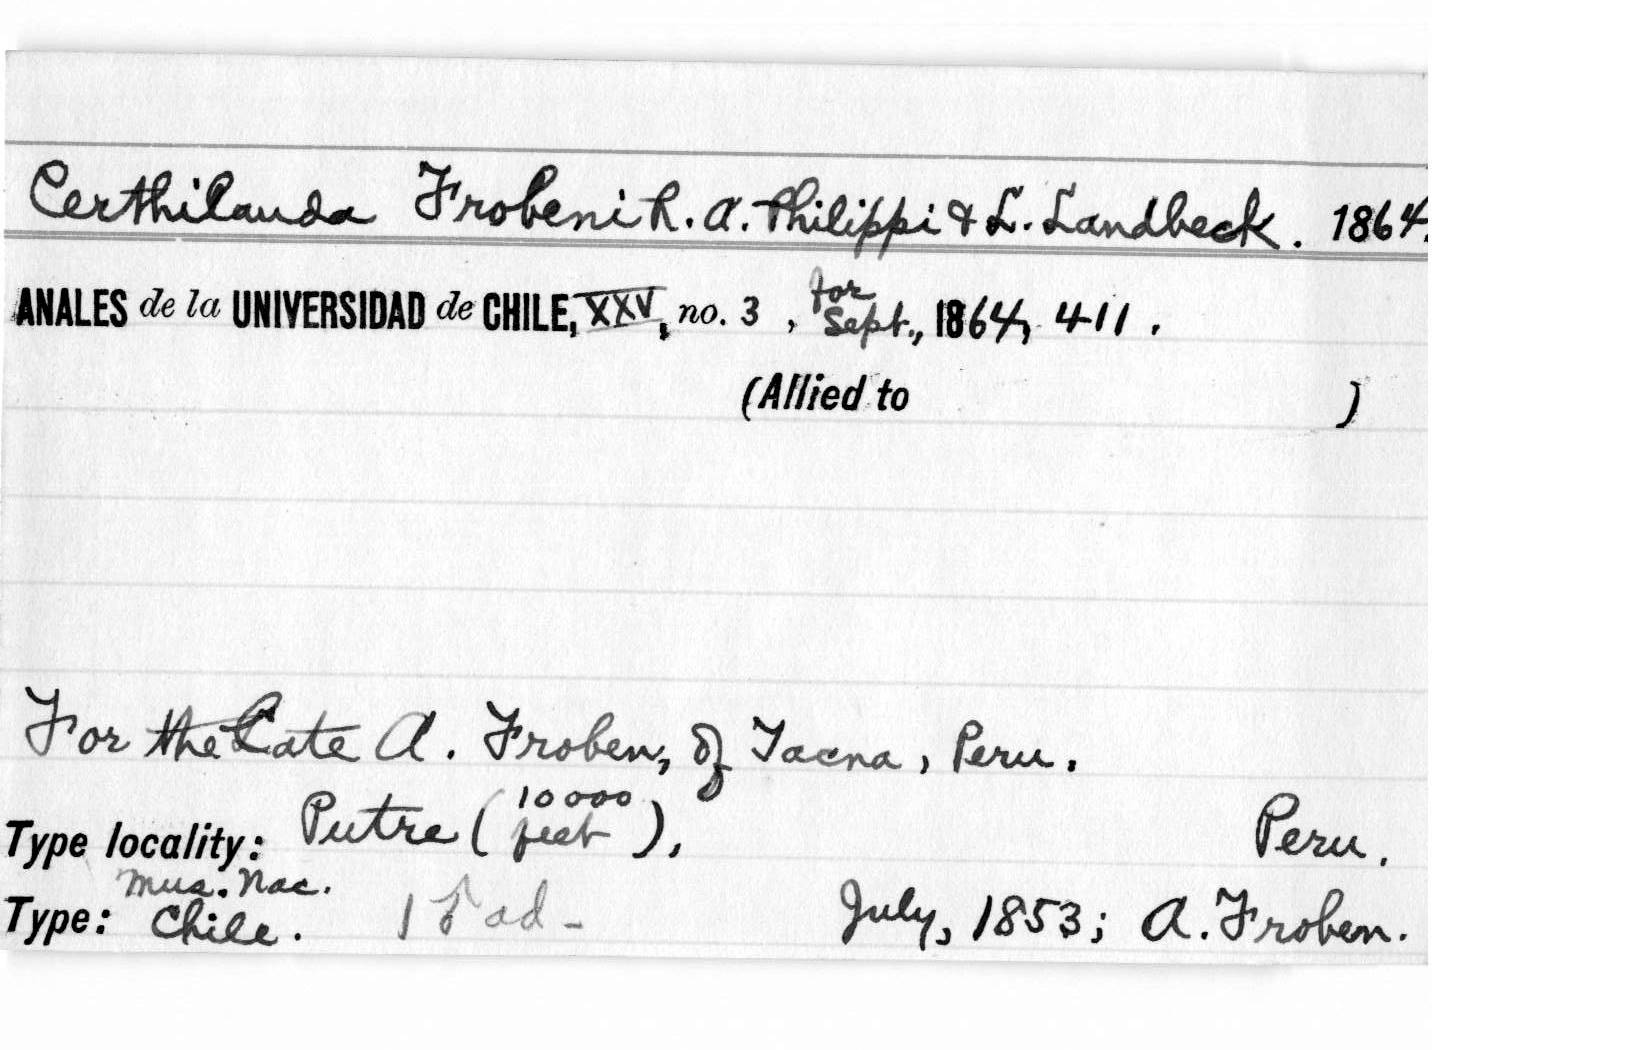 Certhilauda Frobeni R. A. Philippi & L. Landbeck. 1864.
ANALES de la UNIVERSIDAD de CHILE, XXV, no. 3, for Sept., 1864, 411.
(Allied to )
For the late A. Froben, of Tacna, Peru.
Type locality: Putre (10000 feet), Peru.
Type: Mus. Nac. Chile. 1 ad- July, 1853; A. Froben.